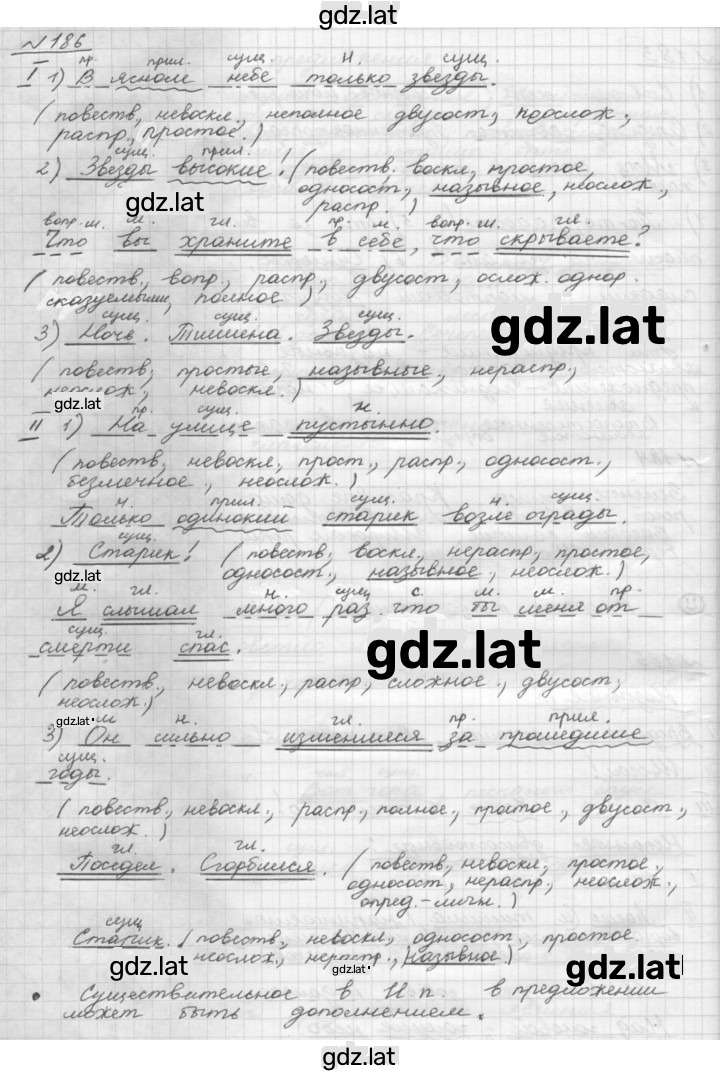 gdz.lat
№186
пр. прил. сущ. н. сущ.
I 1) В ясном небе только звезды.
(повеств, невоскл., неполное двусост., неослож.,
распр., простое.)
сущ. прил.
2) Звезды высокие! (повеств. воскл., простое,
односост., назывное, неослож.,
распр.)
gdz.lat
вопр.м. м. гл. пр. м. вопр.м. гл.
Что вы храните в себе, что скрываете?
(повеств., вопр., распр., двусост., ослож. однор.
сказуемыми, полное)
сущ. сущ. сущ.
3) Ночь. Тишина. Звезды.
gdz.lat
(повеств., простые, назывные, нераспр.,
неослож., невоскл.)
gdz.lat
пр. сущ. н.
II 1) На улице пустынно.
(повеств., невоскл., прост., распр., односост.,
безличное, неослож.)
н. прил. сущ. н. сущ.
Только одинокий старик возле ограды.
сущ.
2) Старик! (повеств., воскл., нераспр., простое,
односост., назывное, неослож.)
gdz.lat
м. гл. н. сущ с. м. м. пр.
Я слышал много раз что ты меня от
сущ. гл.
смерти спас.
gdz.lat
(повеств., невоскл., распр., сложное., двусост.,
неослож.)
gdz.lat
м н. гл. пр. прил.
3) Он сильно изменился за прошедшие
сущ.
годы.
(повеств., невоскл., распр., полное, простое, двусост.,
неослож.)
гл. гл.
Поседел. Сгорбился. (повеств., невоскл., простое,
односост., нераспр., неослож.,
опред.-личн.)
сущ
Старик. (повеств., невоскл., односост., простое.
неослож., нераспр., назывное.)
gdz.lat
gdz.lat
gdz.lat
• Существительное в И.п. в предложении
может быть дополнением.
gdz.lat